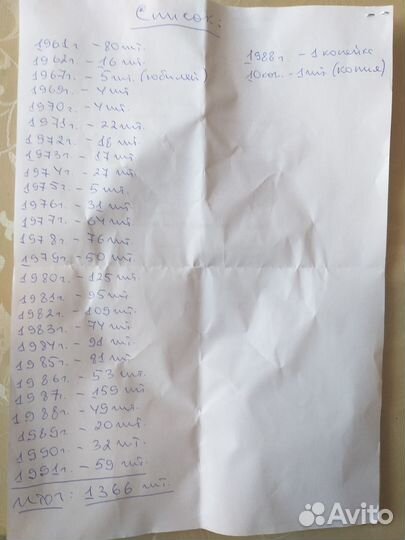 Список:
1961г. - 80 шт.
1962г. - 16 шт.
1967г. - 5 шт. (юбилей)
1969г. - 4 шт
1970г. - 4 шт.
1971г. - 22 шт.
1972г. - 18 шт.
1973г. - 17 шт.
1974г. - 27 шт.
1975г. - 5 шт.
1976г. - 31 шт.
1977г. - 64 шт.
1978г. - 76 шт.
1979г. - 50 шт.
1980г. - 125 шт.
1981г. - 95 шт.
1982г. - 109 шт.
1983г. - 74 шт.
1984г. - 91 шт.
1985г. - 81 шт.
1986г. - 53 шт.
1987г. - 159 шт.
1988г. - 49 шт.
1989г. - 20 шт.
1990г. - 32 шт.
1991г. - 59 шт.
Итог: 1366 шт.
1988г. - 1 копейка
10коп. - 1 шт (копия)
Avito